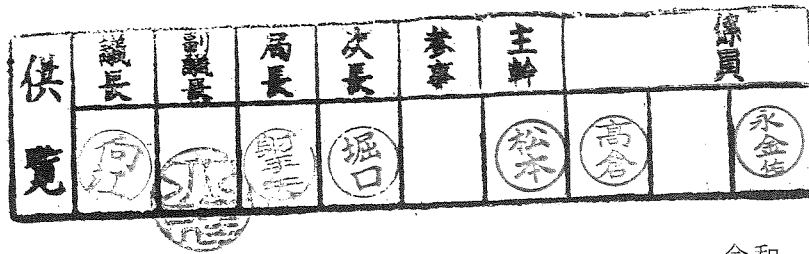 供覧 議長 副議長 局長 次長 参事 主幹 係員
向江 堀口 松本 高倉
令和